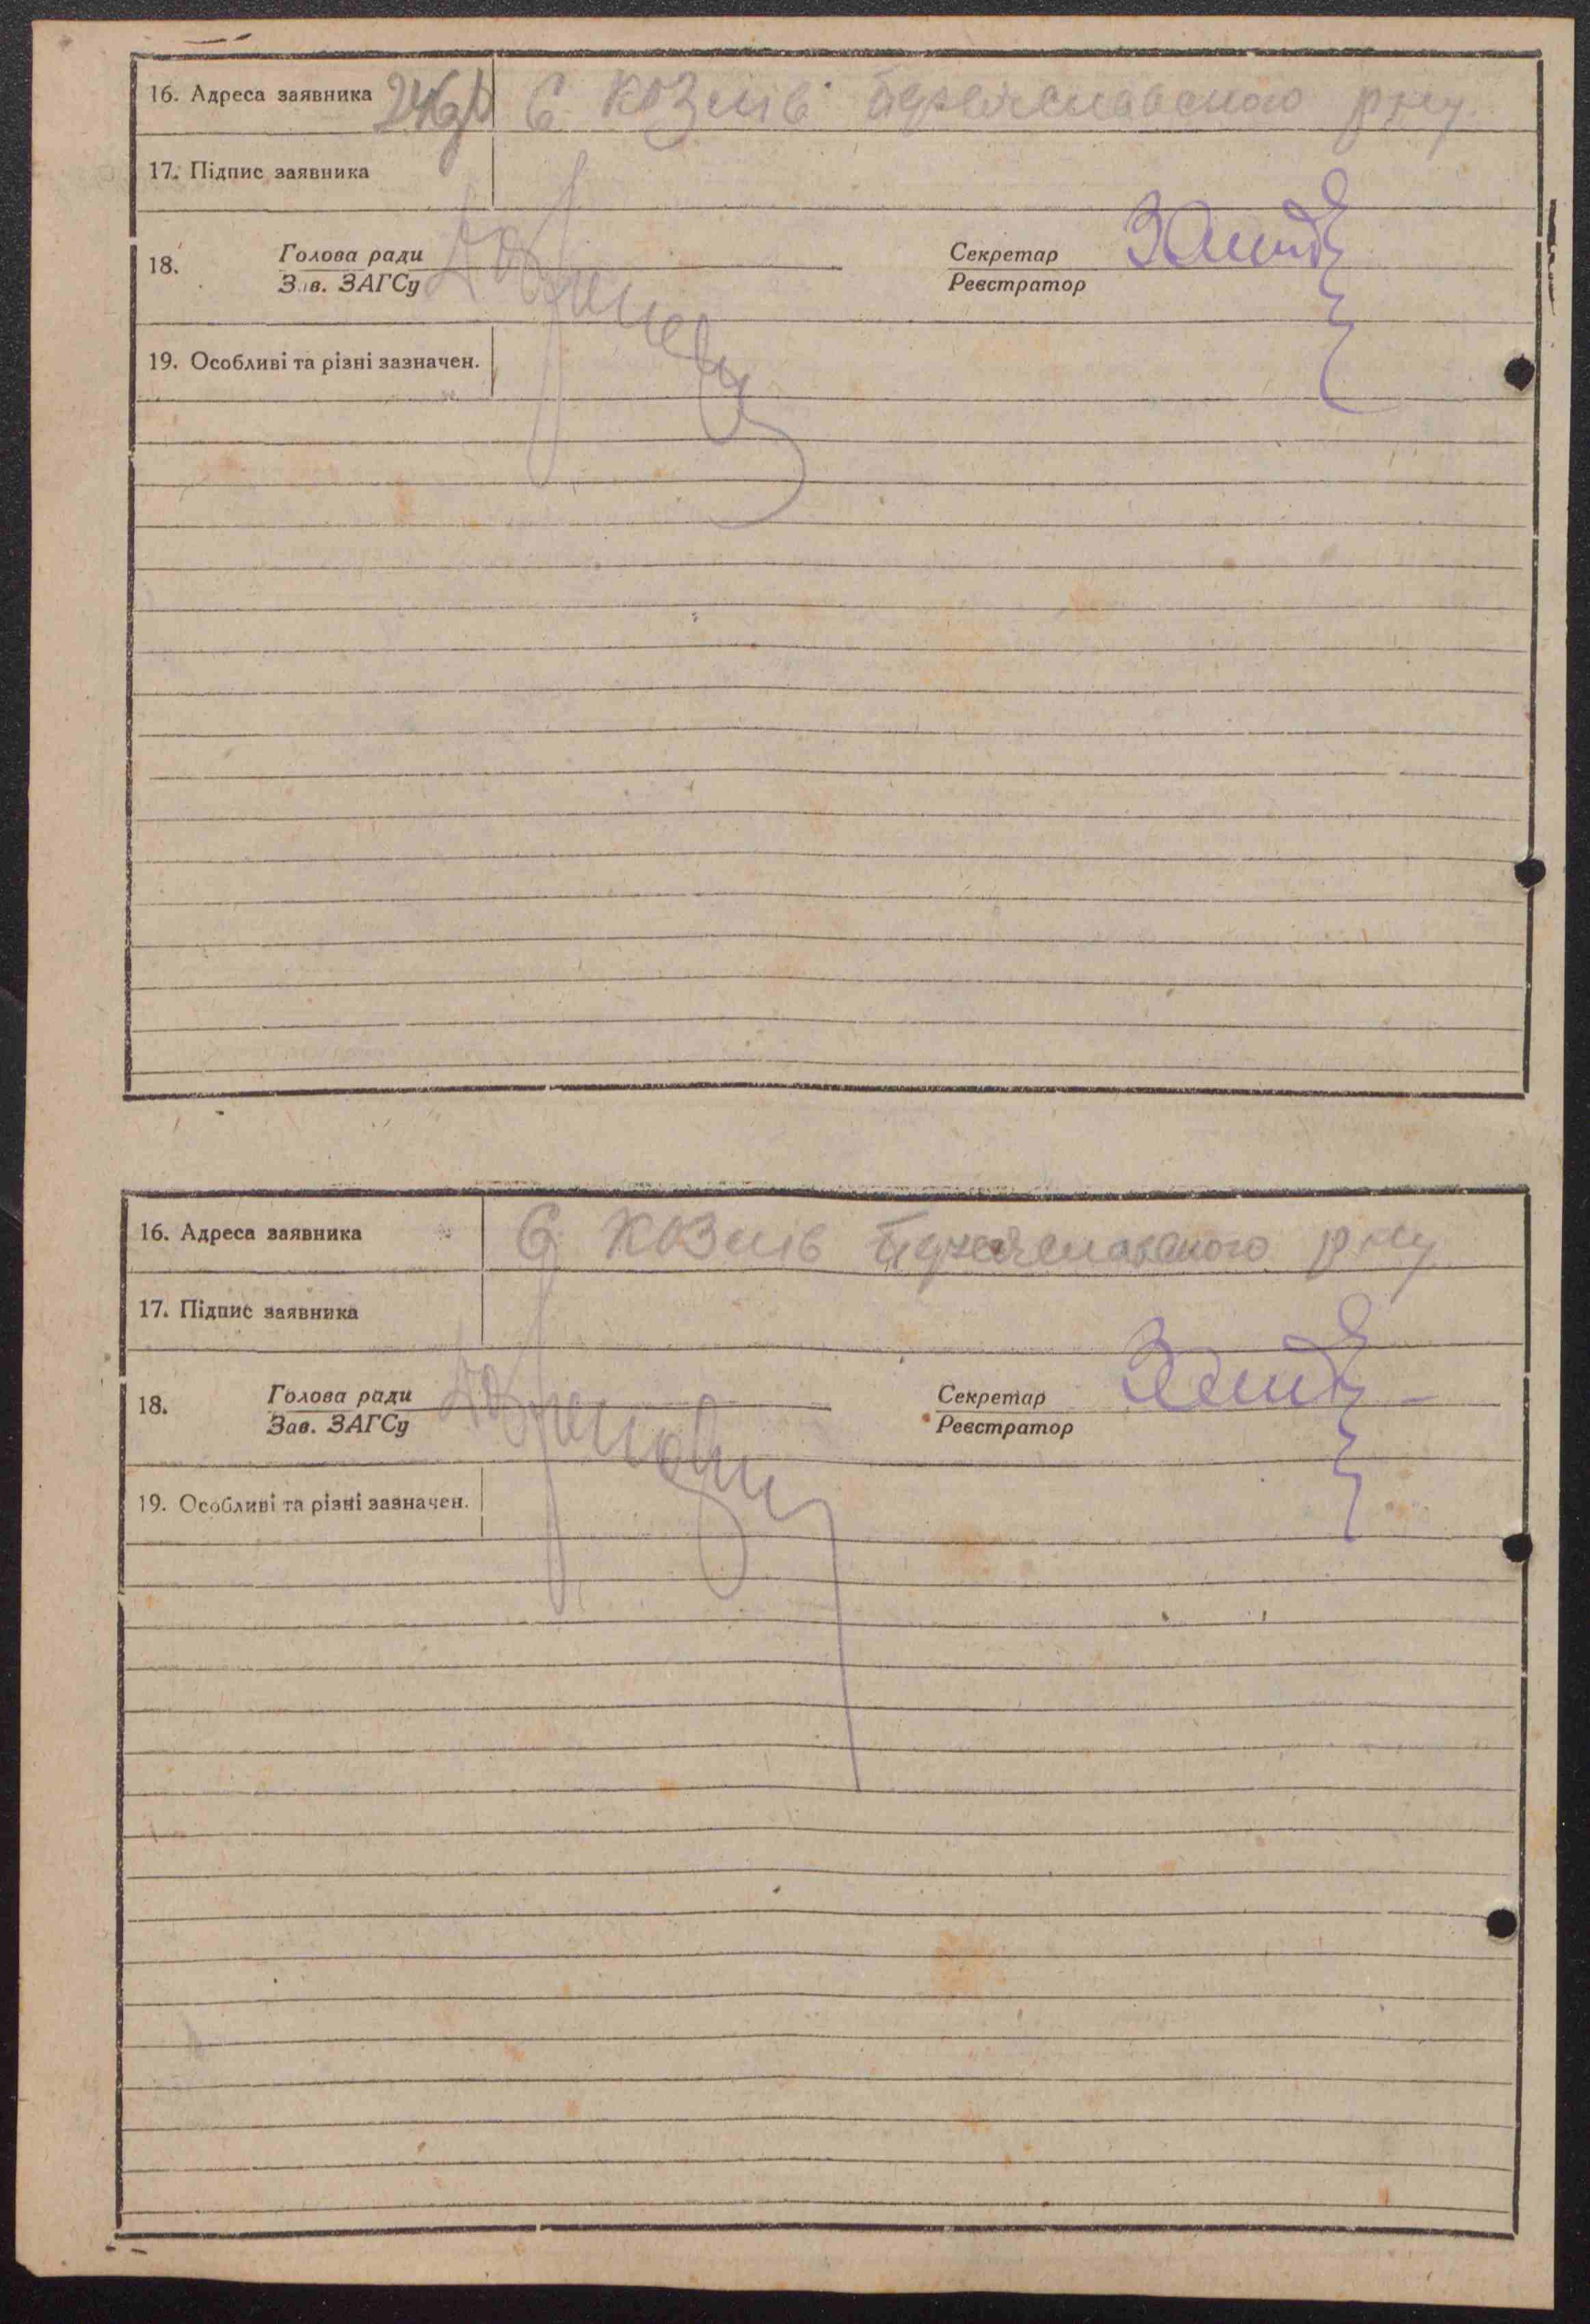 16. Адреса заявника С Козлів Переяславського р-ну.
17. Підпис заявника
18. Голова ради Секретар
Зав. ЗАГСу Реєстратор
19. Особливі та різні зазначен.
16. Адреса заявника С Козлів Переяславського р-ну
17. Підпис заявника
18. Голова ради Секретар
Зав. ЗАГСу Реєстратор
19. Особливі та різні зазначен.